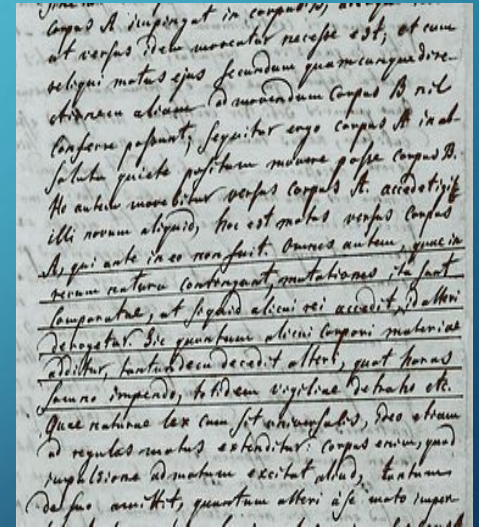 corpus A impingat in corpus B,
ut versus idem moveatur necesse est; et cum
reliqui motus ejus secundum quamcunque dire-
ctionem aliam ad movendum corpus B nil
conferre possunt; sequitur ergo corpus A in ab-
soluta quiete positum movere posse corpus B.
Ho autem movebitur versus corpus A. accedet igit
illi novum aliquid, hoc est motus versus corpus
A, qui ante in eo non fuit. Omnes autem, quae in
rerum natura contingunt, mutationes ita sunt
comparatae, ut si quid alicui rei accedit, id alteri
derogetur. Sic quantum alicui corpori materiae
additur, tantundem decedit alteri, quot horas
somno impendo, totidem vigiliae detraho etc.
Quae naturae lex cum sit universalis, ideo etiam
ad regulas motus extenditur: corpus enim, quod
impulsione ad motum excitat aliud, tantum
de suo amittit, quantum alteri a se moto imper-